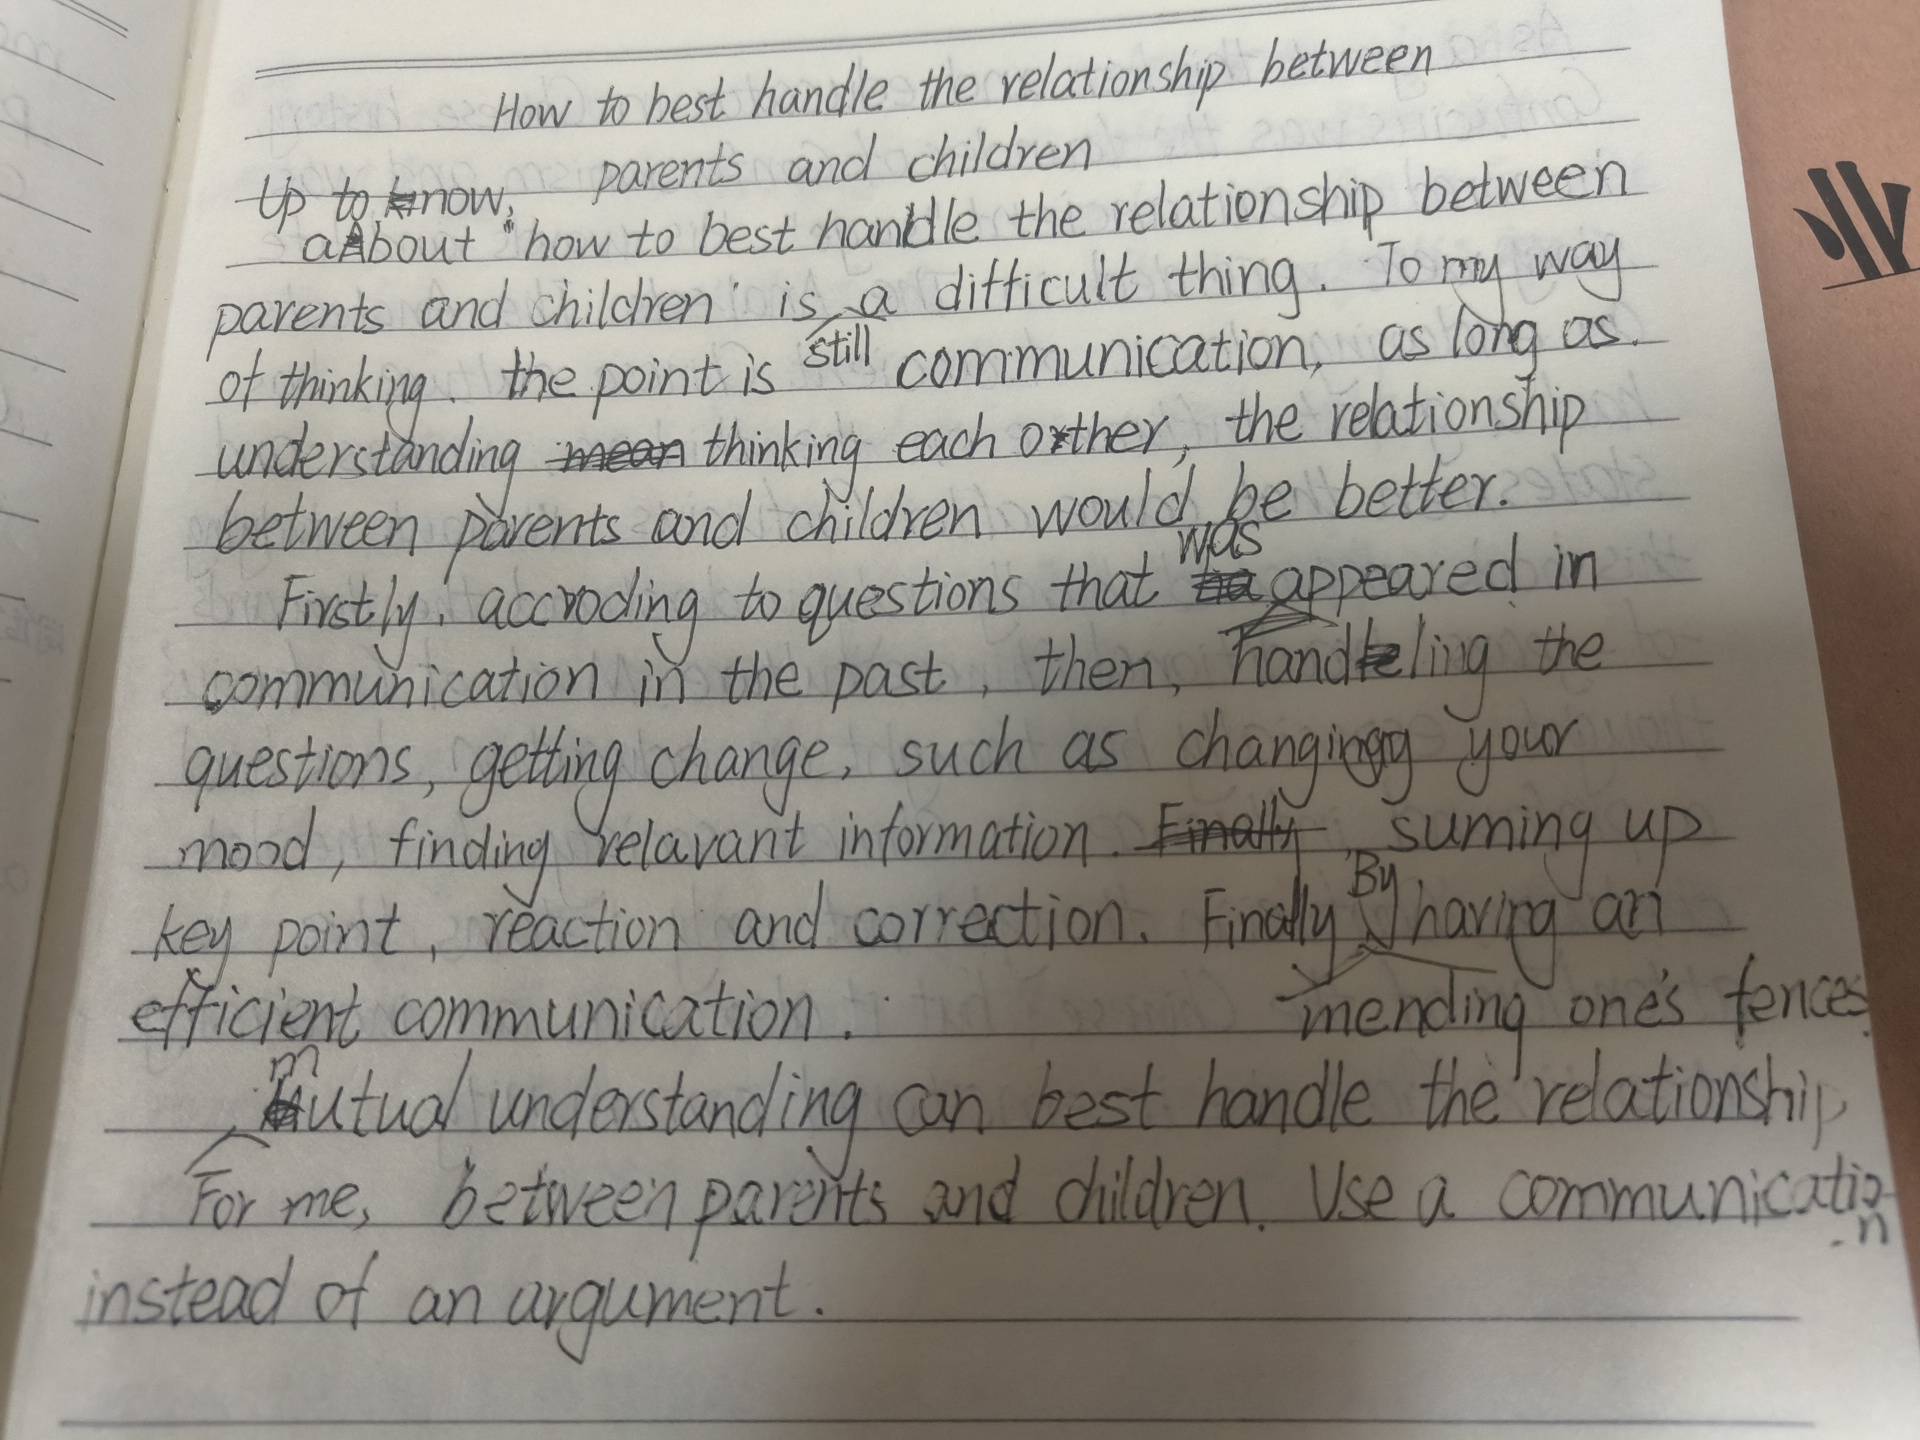 How to best handle the relationship between
parents and children
Up to now,
about "how to best handle the relationship between
parents and children" is a difficult thing. To my way
still
of thinking. the point is communication, as long as.
understanding thinking each other, the relationship
between parents and children would be better.
was
Firstly, accroding to questions that appeared in
communication in the past, then, handling the
questions, getting change, such as changing your
mood, finding relavant information. , suming up
key point, reaction and correction. Finally By having an
efficient communication. mending one's fences
mutual understanding can best handle the relationship
For me, between parents and children. Use a communication
instead of an argument.